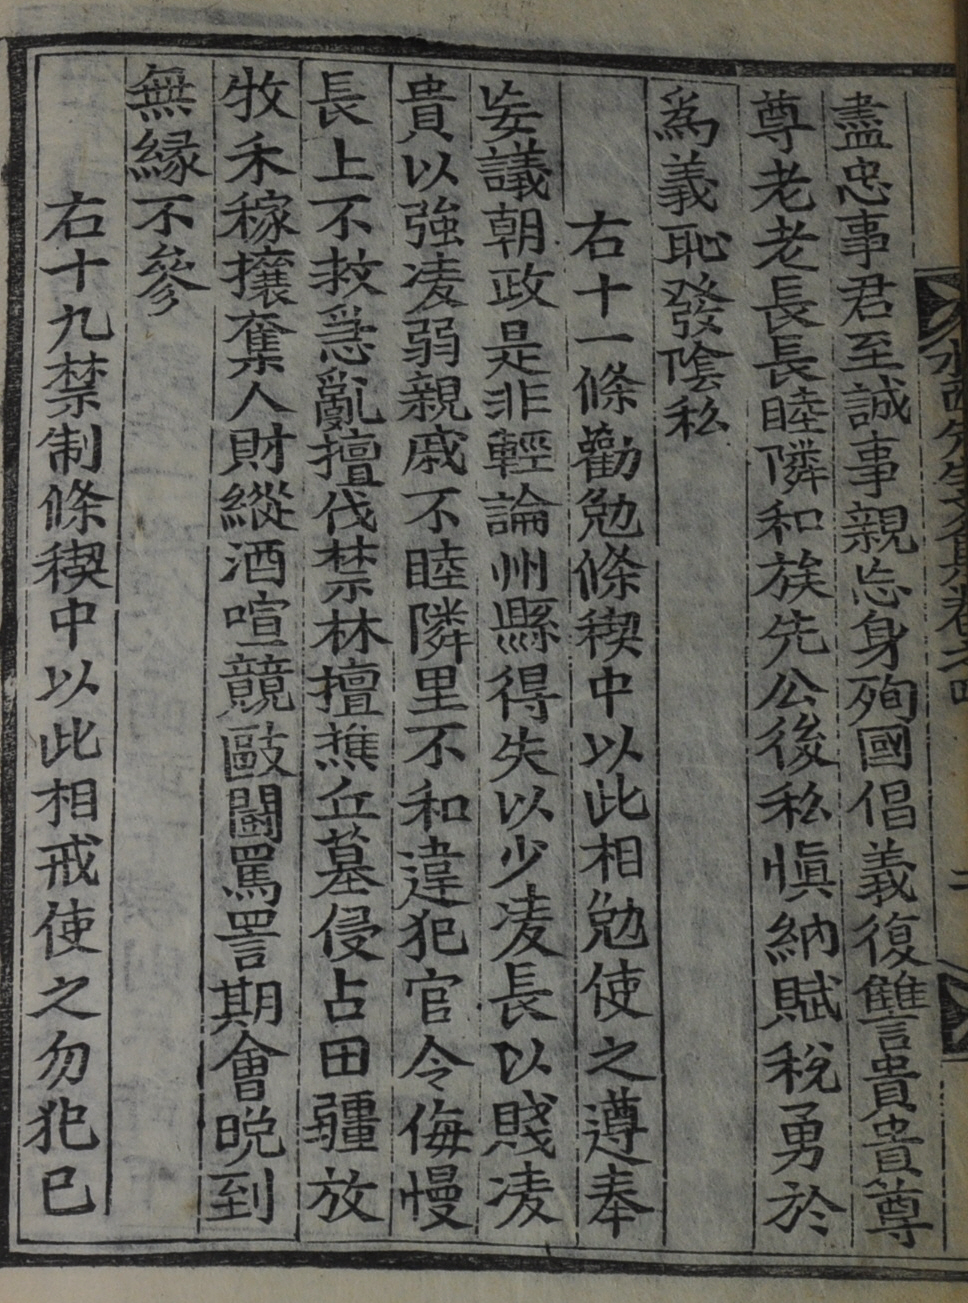 盡忠事君至誠事親忘身殉國倡義復讐貴貴尊
尊老老長長睦隣和族先公後私愼納賦稅勇於
爲義恥發陰私
右十一條勸勉條稧中以此相勉使之遵奉
妄議朝政是非輕論州縣得失以少凌長以賤凌
貴以強凌弱親戚不睦隣里不和違犯官令侮慢
長上不救急亂擅伐禁林擅樵丘墓侵占田疆放
牧禾稼攘奪人財縱酒喧競敺鬪罵詈期會晩到
無縁不參
右十九禁制條稧中以此相戒使之勿犯已